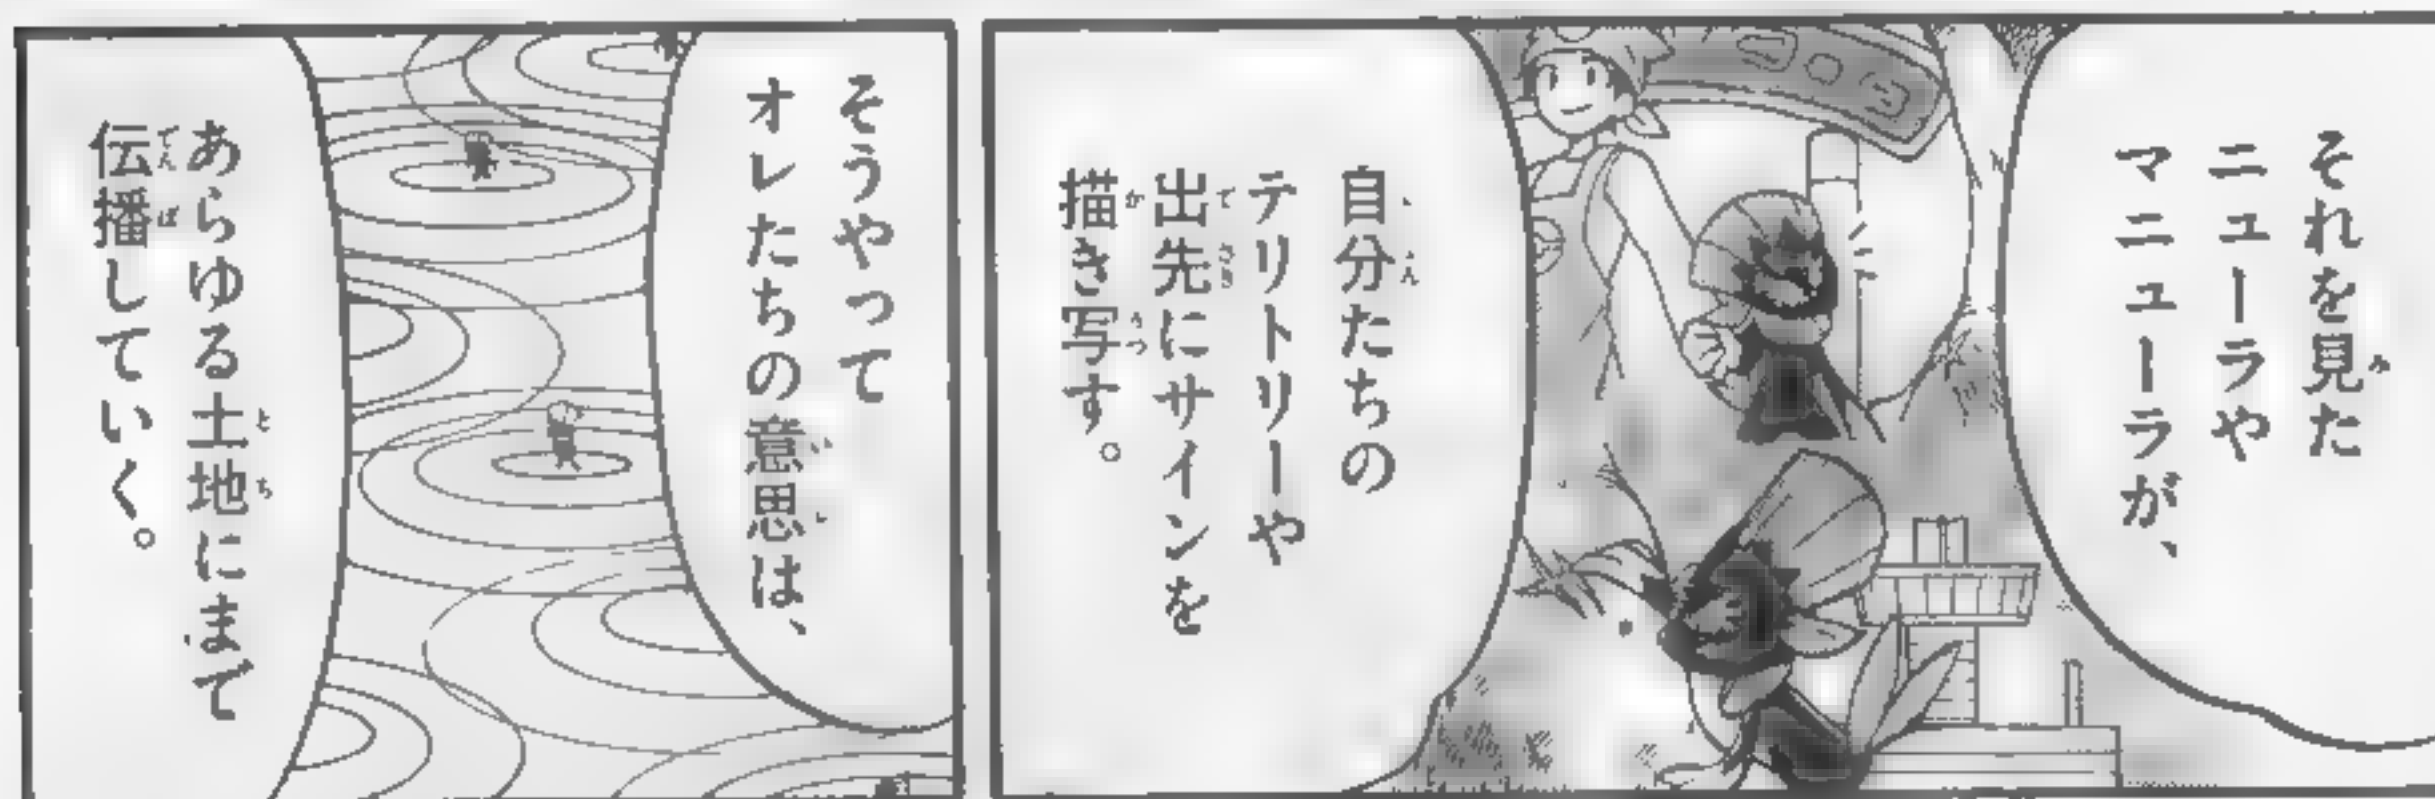 それを見た
ニューラや
マニューラが、
自分たちの
テリトリーや
出先にサインを
描き写す。
そうやって
オレたちの意思は、
あらゆる土地にまで
伝播していく。